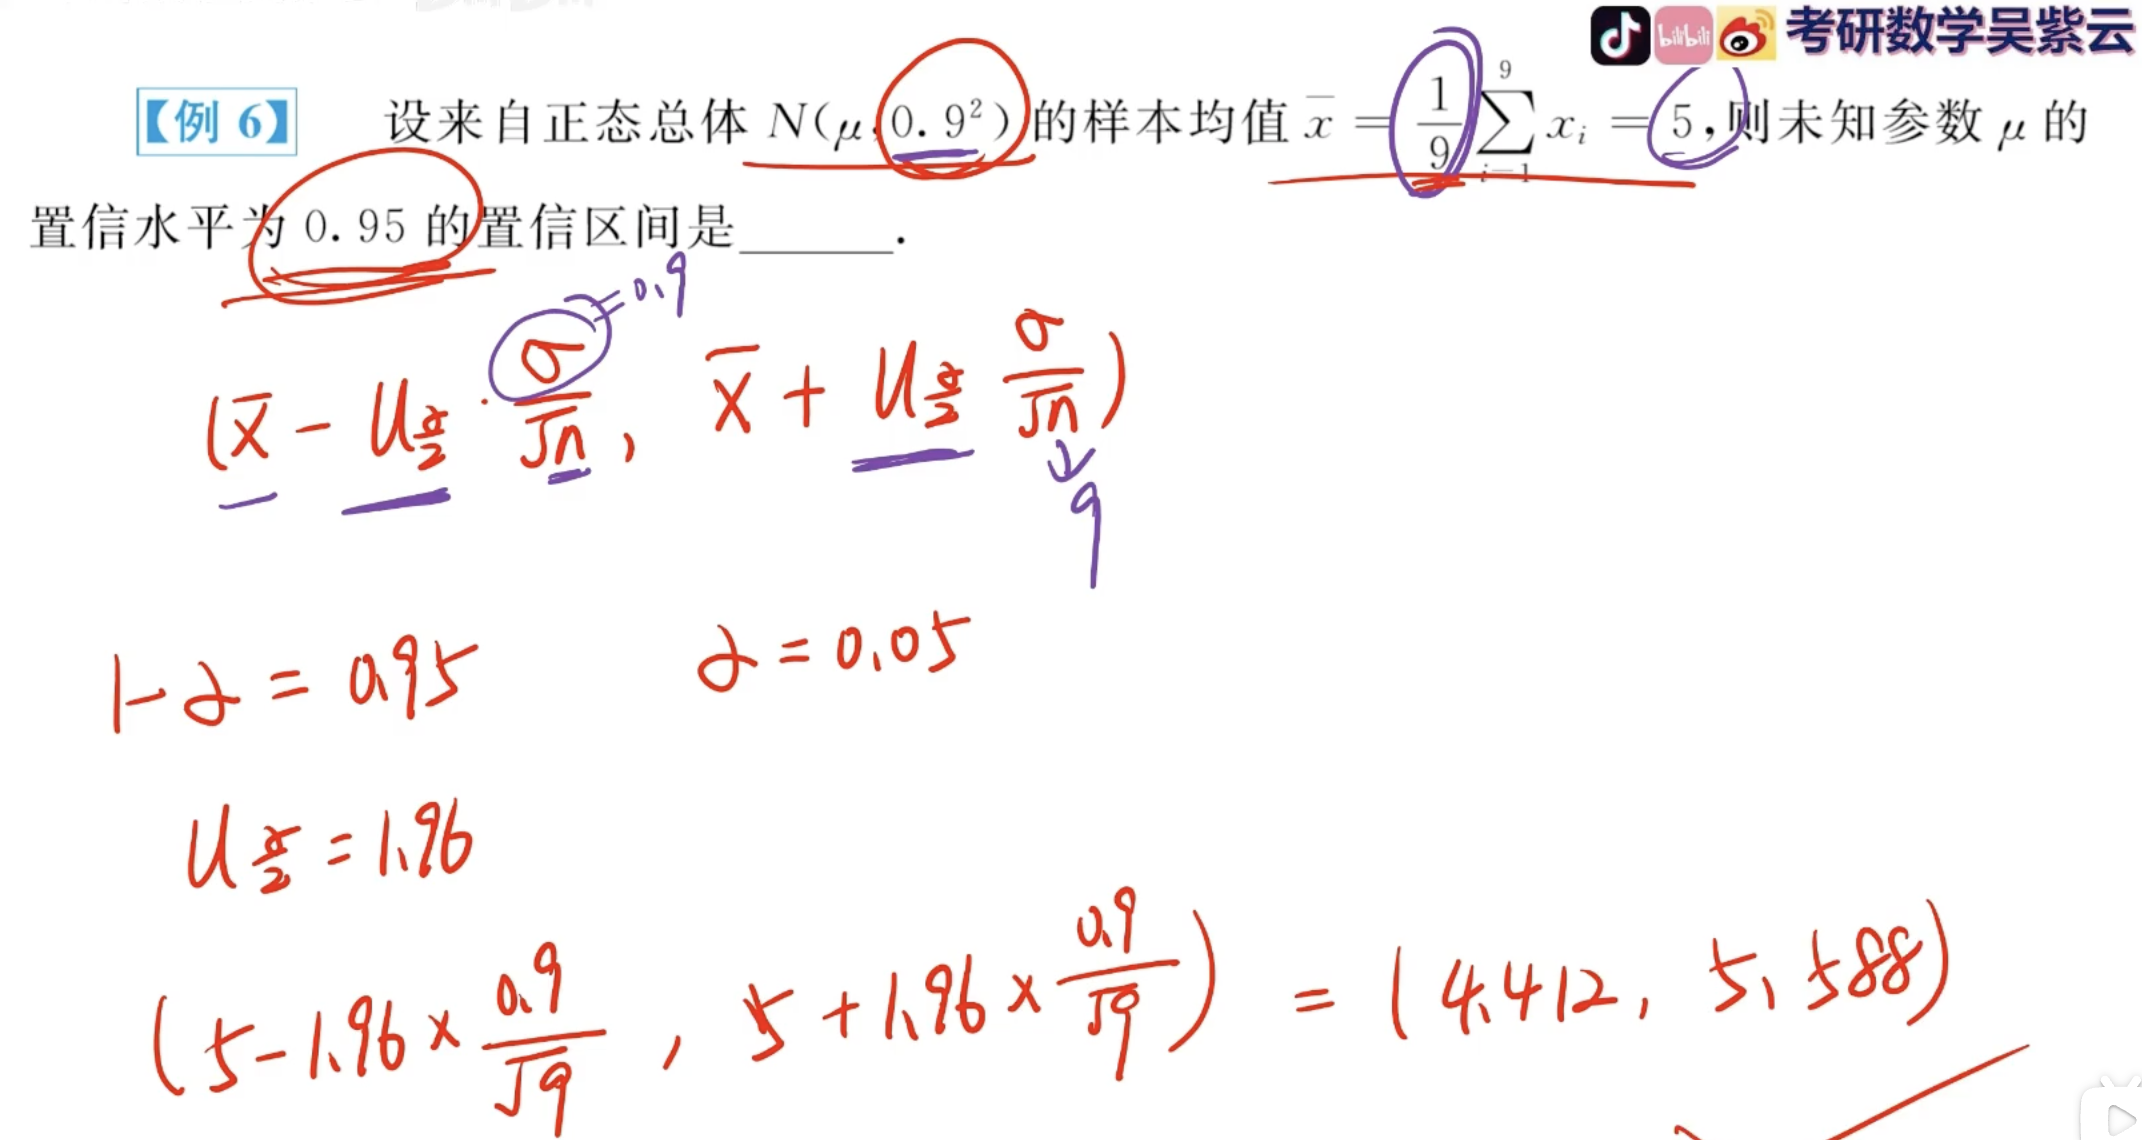 考研数学吴紫云
【例 6】 设来自正态总体 N(μ,0.9²)的样本均值 x̄ = 1/9 ∑_{i=1}^{9} x_i = 5,则未知参数 μ 的
置信水平为 0.95 的置信区间是______.
= 0.9
(x̄ - U_{α/2} · σ/√n , x̄ + U_{α/2} σ/√n)
9
1-α = 0.95 α = 0.05
U_{α/2} = 1.96
(5-1.96× 0.9/√9 , 5+1.96× 0.9/√9) = (4.412, 5.588)